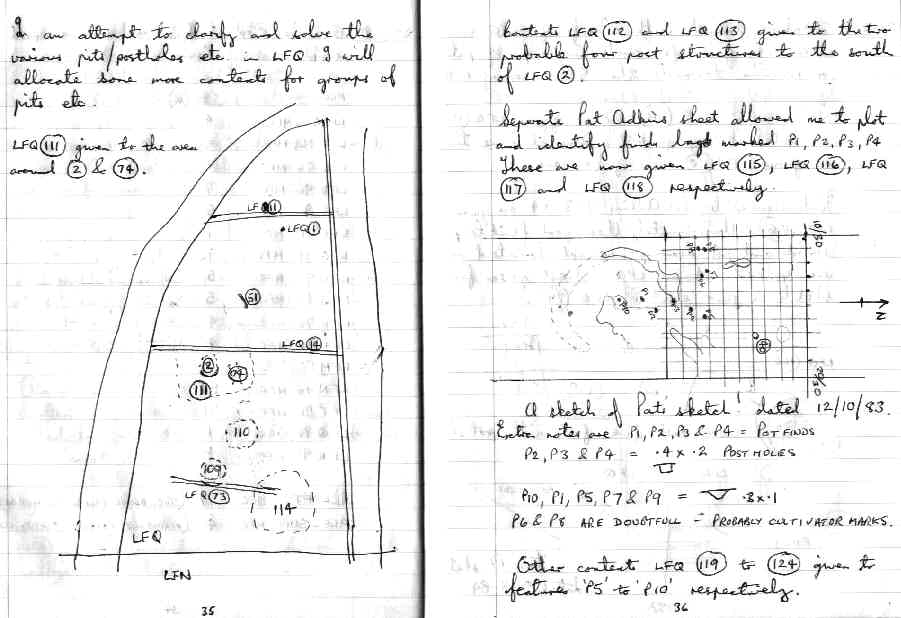 In an attempt to clarify and solve the
various pits/postholes etc. in LFQ I will
allocate some more contexts for groups of
pits etc.
LFQ (111) given to the area
around (2) & (74).
LFQ (11)
LFQ (1)
(51)
LFQ (14)
(2)
(74)
(111)
110
109
LFQ (73)
114
LFQ
LFN
35
Contexts LFQ (112) and LFQ (113) given to the two
probable four post structures to the south
of LFQ (2).
Separate Pat Adkins sheet allowed me to plot
and identify finds bags marked P1, P2, P3, P4
These are now given LFQ (115), LFQ (116), LFQ
(117) and LFQ (118) respectively.
P10
P1
P2
P3
Z
A sketch of Pat's 'sketch' dated 12/10/83.
Extra notes are P1, P2, P3 & P4 = POT FINDS
P2, P3 & P4 = .4 x .2 POST HOLES
P10, P1, P5, P7 & P9 = .3 x .1
P6 & P8 ARE DOUBTFULL - PROBABLY CULTIVATOR MARKS.
Other contexts LFQ (119) to (124) given to
features 'P5' to 'P10' respectively.
36